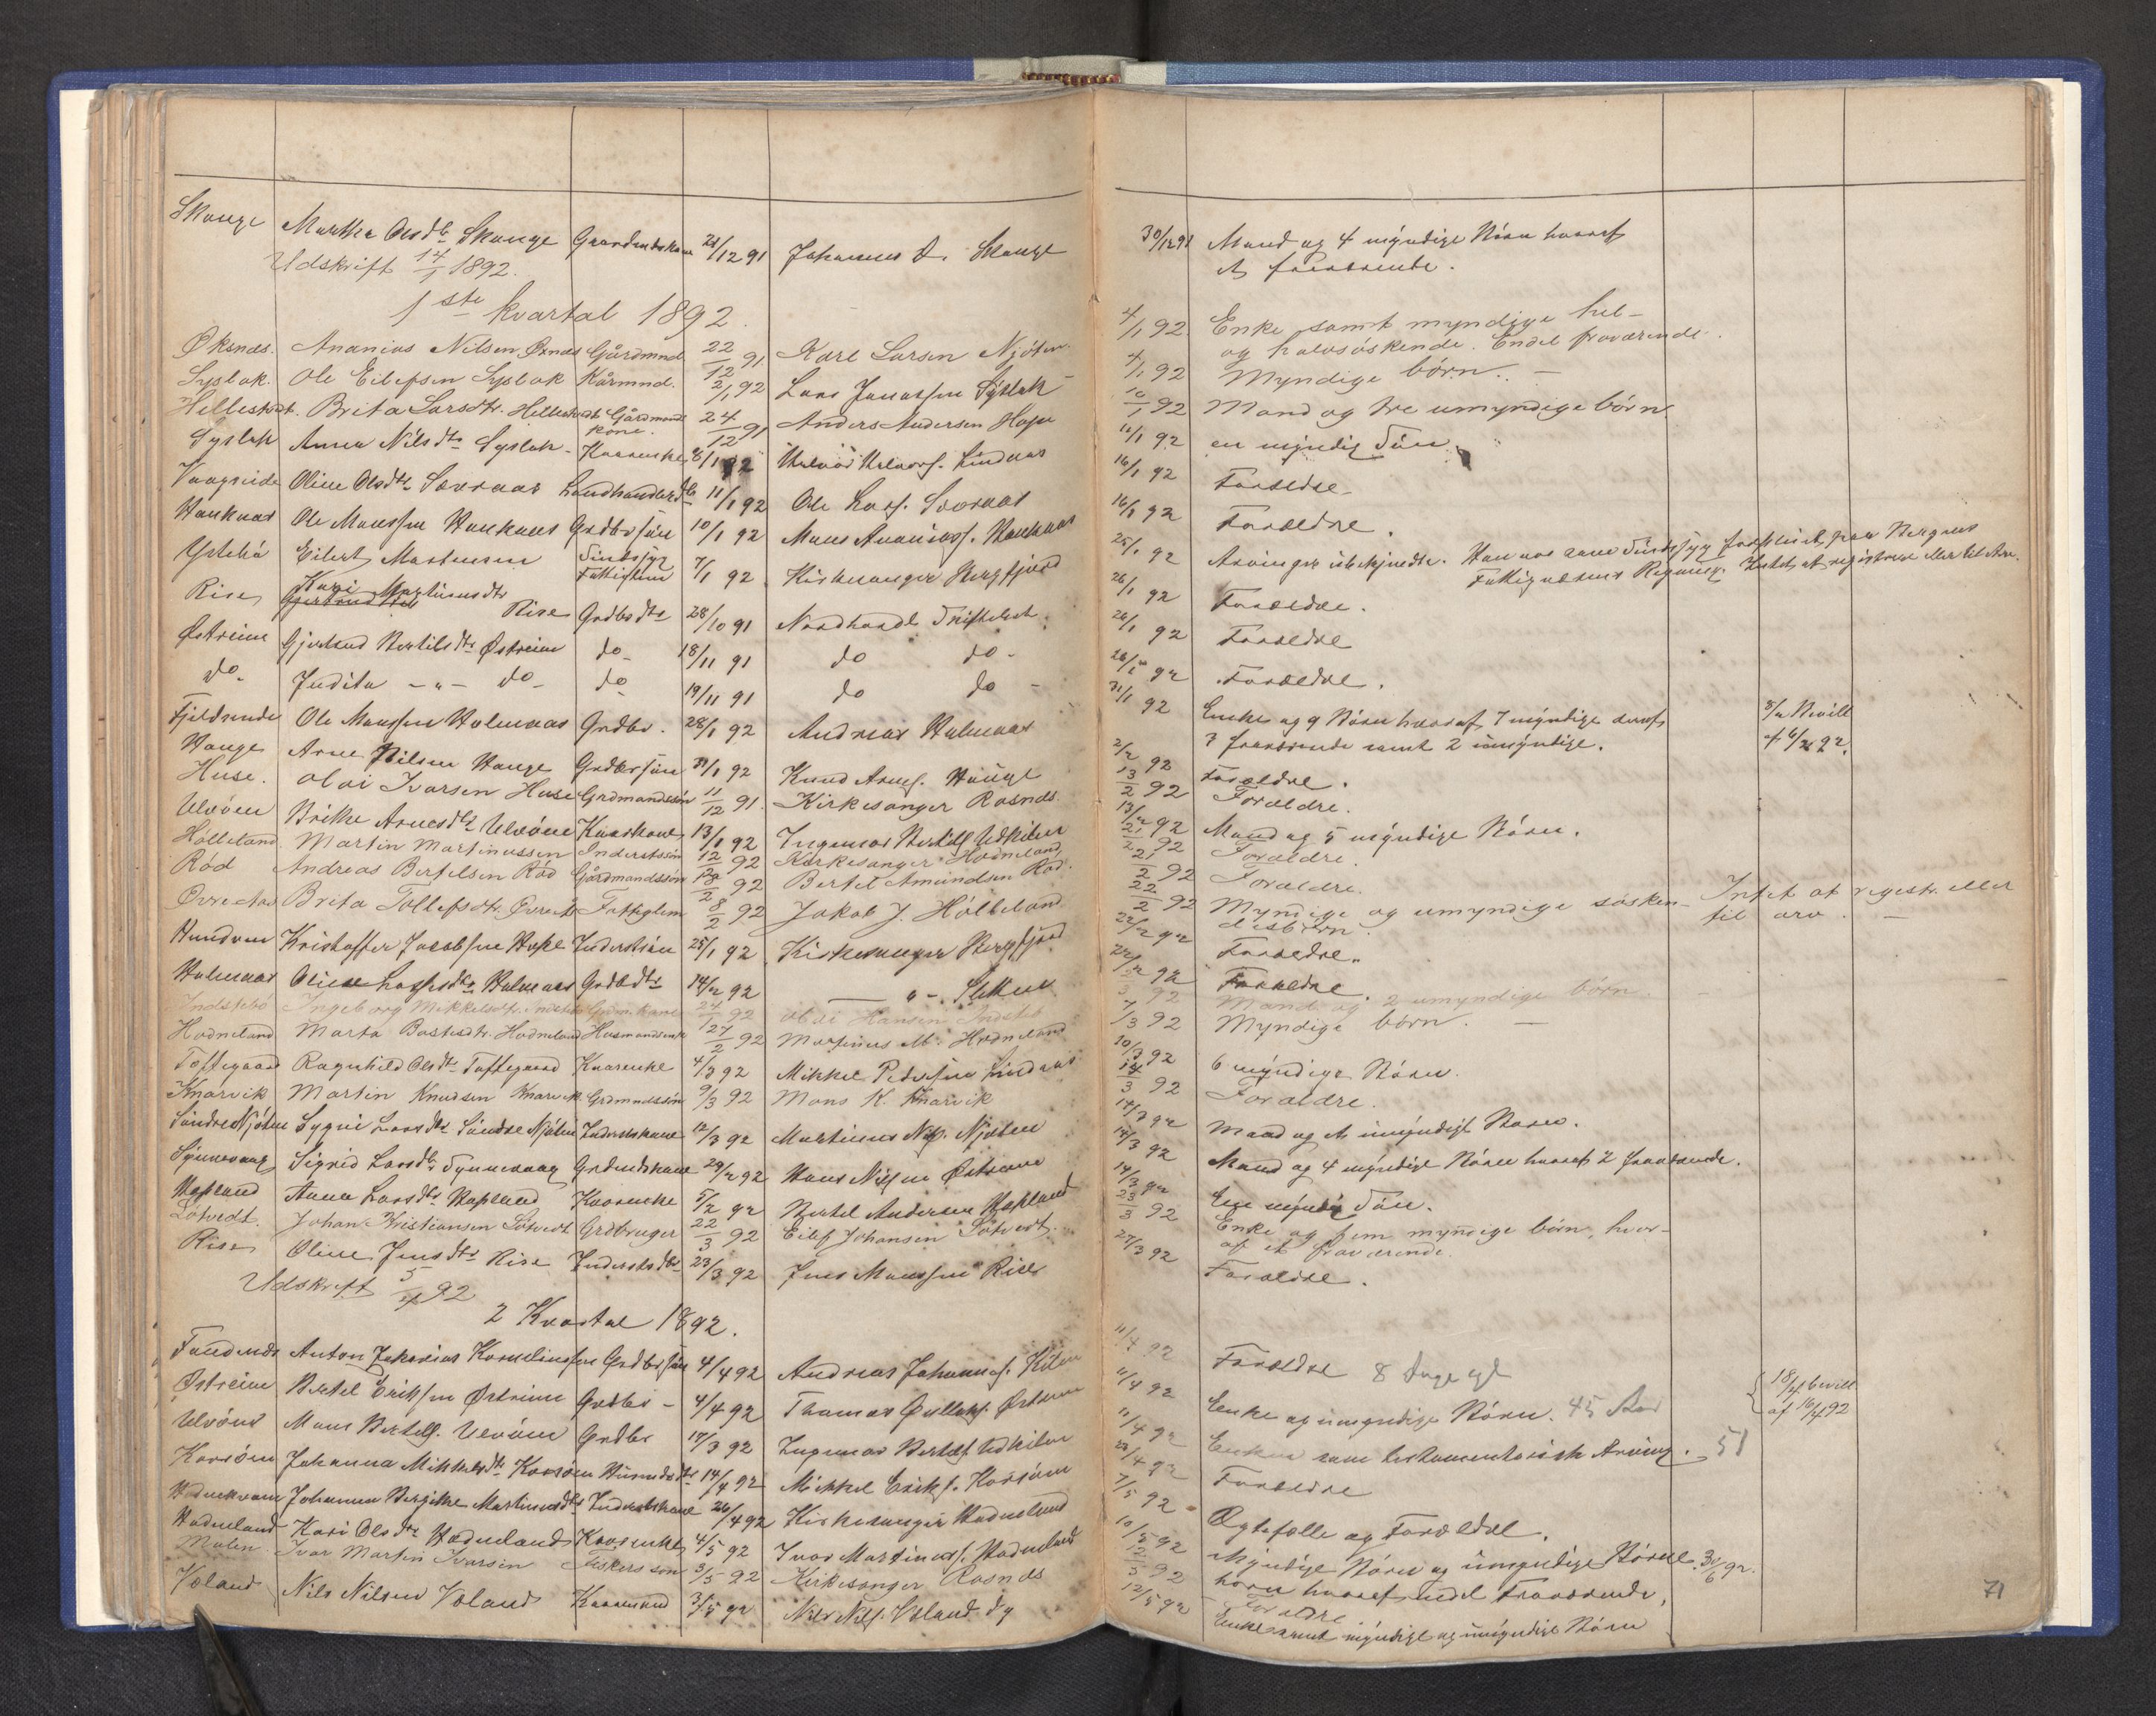 Skauge Martha Olsdtr Skauge Gaardmdskone 28/12 91 Johannes A. Skauge 30/12 91 Mand og 4 myndige Börn hvoraf
Udskrift 14/1 1892. et fraværende.
1ste kvartal 1892.
Øksnæs. Ananias Nilsen Øxnæs Gårdmnd. 22/12 91 Karl Larsen Njöten 4/1 92 Enke samt myndige hel-
og halvsöskende. Endel fraværende.
Syslak. Ole Eilefsen Syslak Kårmnd. 2/1 92 Lars Jonassen Syslak 4/1 92 Myndige börn. —
Hellestvedt. Brita Larsdtr. Hellestvedt Gårdmands kone. 24/12 91 Anders Andersen Hope 10/1 92 Mand og tre umyndige börn.
Syslak Anna Nilsdtr Syslak - Kaarenke 8/1 92 Halvor Halvors. Lindaas 12/1 92 en myndig Sön.
Vaagseide Oline Olsdtr Sævraas Landhandlerdtr 11/1 92 Ole Lars. Sævraas 16/1 92 Forældre
Haukaas Ole Monssen Haukaas Grdbrsön 10/1 92 Mons Ananiass. Haukaas 16/1 92 Forældre.
Ystebö Eilert Martinsen Sindssyg Fattiglem 7/1 92 Kirkesanger Bergfjord 25/1 92 Arvinger ubekjendte. Han var som Sindssyg forpleiet paa Bergens
Fattigvæsens Regning. Intet at registrere eller til Arv.
Rise Kari Martinusdtr Rise Grdbrdtr 28/10 91 Nordhordl. Skifteret 26/1 92 Forældre.
Østreim Gjertrud Bertilsdtr Østreim do 18/11 91 do do 26/1 92 Forældre
do. Judita - " - do - do 19/11 91 do do - 26/1 92 Forældre.
Fjeldsende Ole Monssen Holmaas Grdbr. 28/1 92 Andreas Holmaas 31/1 92 Enke og 9 Börn hvoraf 7 myndige deraf
3 fraværende samt 2 umyndige.
Hauge Arne Nilsen Hauge Grdbrsön 31/1 92 Knud Arnes. Hauge 2/2 92 Forældre.
Huse. Olai Ivarsen Huse Grdmandssön 11/12 91. Kirkesanger Rosnæs 13/2 92 Forældre.
Ulvöen Brithe Arnesdtr Ulvöen Kaarkone 13/1 92 Ingemar Bertels. Udkilen 13/2 92 Mand og 5 myndige Börn.
Hölleland. Martin Martinussen Inderstsön 12/2 92 Kirkesanger Hodneland 21/2 92 Forældre.
Röd Andreas Bertelsen Röd Gårdmandssön 18/2 92 Bertel Amundsen Röd. 21/2 92 Forældre.
Øvre Aas Brita Tollefsdtr. Øvre Aas Fattiglem 8/2 92 Jakob J. Hölleland 22/2 92 Myndige og umyndige sösken- Intet at registr. eller
debörn. til arv. —
Hundven Kristoffer Jacobsen Hope Inderstsön 25/1 92 Kirkesanger Bergfjord 22/2 92 Forældre.
Holmaas Oline Larsdtr Holmaas Grdbdtr 14/2 92 — " -. 22/2 92 Forældre.
Indstebö Ingeborg Mikkelsdtr. Indstebö Grdm.kone 92 Olai Hansen Indstebö 3 92 Mand og 2 umyndige börn. —
Hodneland Marta Bastesdtr. Hodneland Husmandsenke 27/2 92 Martinus M. Hodneland 7/3 92 Myndige börn. —
Toftegaard Ragnhild Olsdtr Toftegaard Kaarenke 4/3 92 Mikkel Pedersen Lindaas 10/3 92 6 myndige Börn.
Knarvik Martin Knudsen Knarvik Grdmndssön 9/3 92 Mons K. Knarvik 14/3 92 Forældre.
Söndre Njöten Sygni Larsdtr Söndre Njöten Inderstkone 12/3 92 Martinus Nils. Njöten 14/3 92 Mand og et umyndigt Barn.
Synnevaag Sigrid Larsdtr Synnevaag Grdmdskone 29/2 92 Hans Nilsen Østrem 14/3 92 Mand og 4 myndige Börn hvoraf 2 fraværende.
Hopland Anna Larsdtr Hopland Kaarenke 5/2 92 Bertel Andersen Hopland 14/3 92 En myndig Sön.
Lötvedt. Johan Kristiansen Lötvedt Grdbruger 22/3 92 Eilef Johansen Lötvedt. 23/3 92 Enke og fem myndige börn, hvor-
af et fraværende.
Rise Oline Jensdtr Rise Inderstdtr 23/3 92 Jens Monssen Rise 27/3 92 Forældre.
Udskrift 5/4 92
2 Kvartal 1892.
Fundnæs Anton Zakarias Kornelinssen Grdbrsön 4/4 92 Andreas Johannes. Kilen 11/4 92 Forældre 8 Dage gl
Østreim Bertel Eriksen Østreim Grdbr - 4/4 92 Thomas Østrem 11/4 92 Enke og umyndige Börn. 45 Aar { 18/4 bevill
af 16/4 92
Ulvöen Mons Bertels. Ulvöen Grdbr 17/3 92 Ingemar Bertels. Udkilen 11/4 92 Enken som testamentarisk Arving. 51
Korsöen Johanna Mikkelsdtr Korsöen Husmdsdtr 14/4 92 Mikkel Eriks. Korsöen 23/4 92 Forældre
Johanna Bergithe Martinusdtr Inderstkone 26/4 92 Kirkesanger Hodneland 7/5 92 Ægtefælle og Forældre.
Hodneland Kari Olsdtr Hodneland Kaarenke 4/5 92 Ivar Martinuss. Hodneland 10/5 92 Myndige Börn og umyndige Börne- 30/6 92.
börn hvoraf endel fraværende,
Mulen. Ivar Martin Ivarsen Fiskerssön 3/5 92 Kirkesanger Rosnæs 12/5 92 Forældre.
Voland Nils Nilsen Voland Kaarmand 3/5 92 Nils Nils. Voland dy 12/5 92 Enke samt myndige og umyndige Börn
8/2 Bevill
af 6/2 92.
71